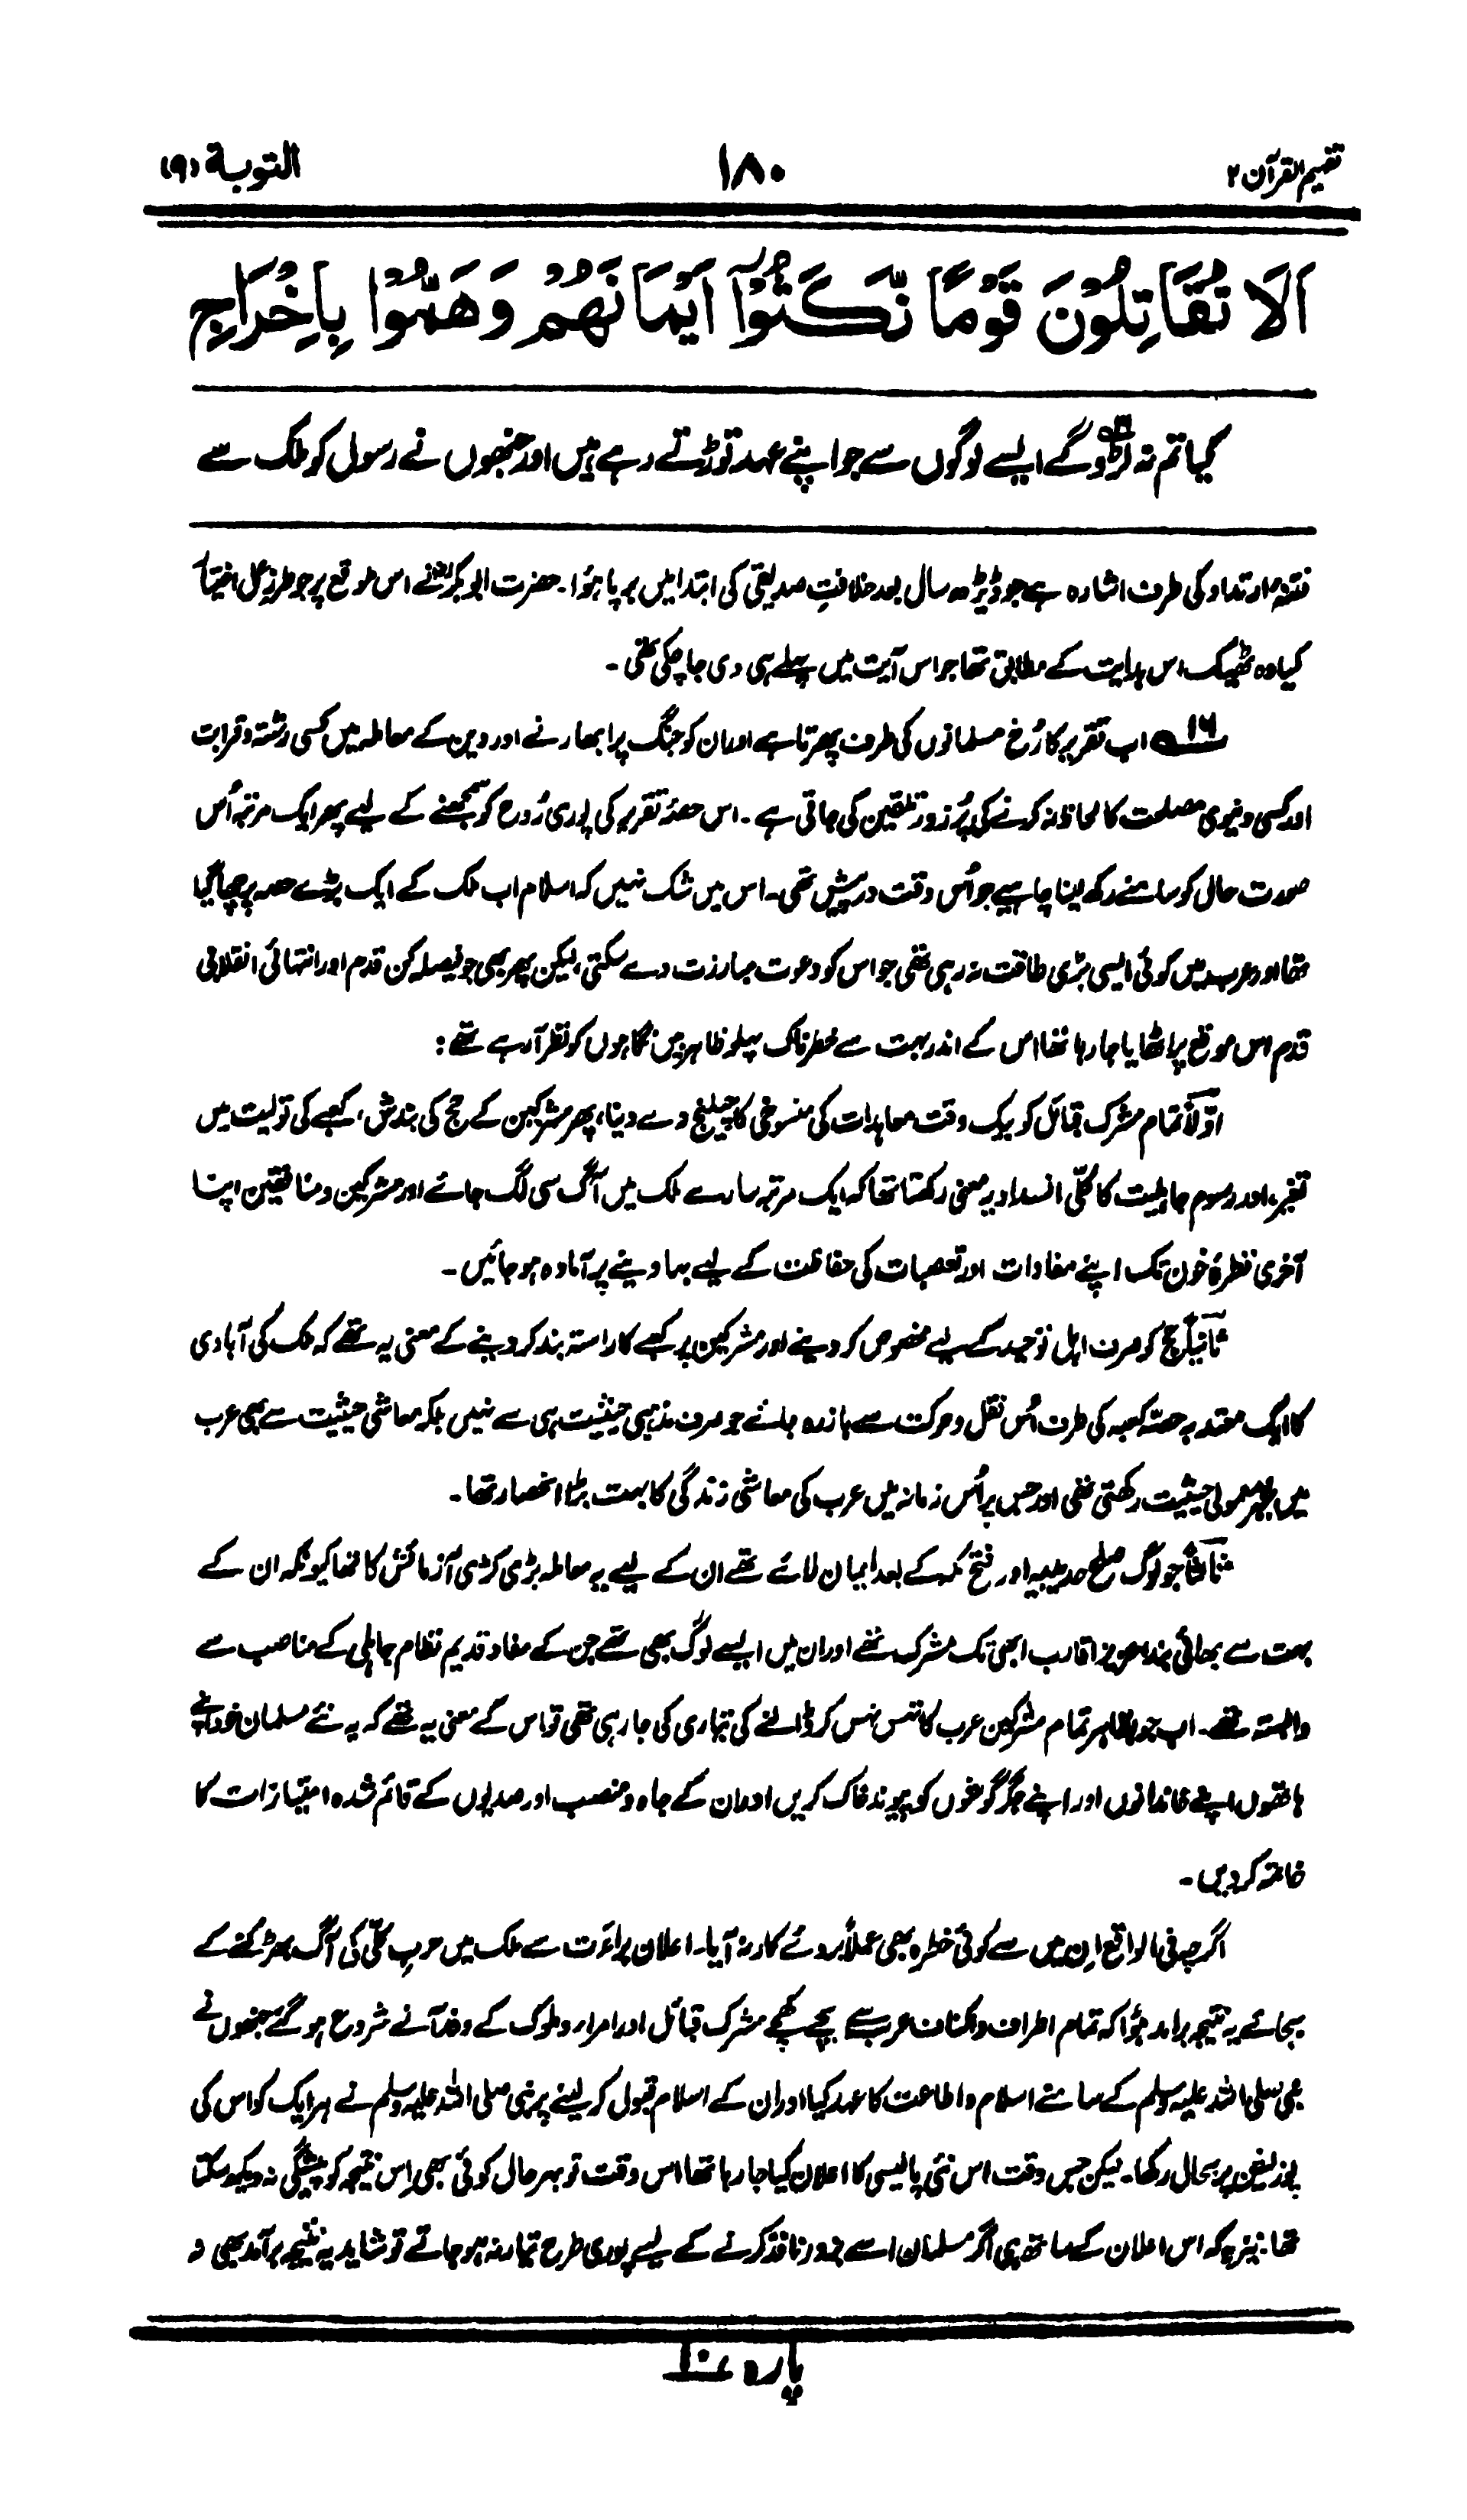 تفہیم القرآن ۲
۱۸۰
التوبۃ (۹)
اَلَا تُقَاتِلُوْنَ قَوْمًا نَّكَثُوْٓا اَيْمَانَهُمْ وَهَمُّوْا بِاِخْرَاجِ
کیا تم نہ لڑو گے ایسے لوگوں سے جو اپنے عہد توڑتے رہے ہیں اور جنھوں نے رسول کو ملک سے
فتنۂ ارتداد کی طرف اشارہ ہے جو ڈیڑھ سال بعد خلافتِ صدیقی کی ابتدا میں برپا ہُوا۔ حضرت ابوبکرؓ نے اس موقع پر جو طرزِ عمل اختیار
کیا وہ ٹھیک اس ہدایت کے مطابق تھا جو اس آیت میں پہلے ہی دی جا چکی تھی۔
۱۶ اب تقریر کا رُخ مسلمانوں کی طرف پھرتا ہے اور ان کو جنگ پر ابھارنے اور دین کے معاملہ میں کسی رشتہ و قرابت
اور کسی دنیوی مصلحت کا لحاظ نہ کرنے کی پُرزور تلقین کی جاتی ہے۔ اس حصۂ تقریر کی پوری رُوح کو سمجھنے کے لیے پھر ایک مرتبہ اُس
صورت حال کو سامنے رکھ لینا چاہیے جو اُس وقت درپیش تھی۔ اس میں شک نہیں کہ اسلام اب ملک کے ایک بڑے حصہ پر چھا گیا
تھا اور عرب میں کوئی ایسی بڑی طاقت نہ رہی تھی جو اس کو دعوت مبارزت دے سکتی، لیکن پھر بھی جو فیصلہ کن قدم اور انتہائی انقلابی
قدم اس موقع پر اٹھایا جا رہا تھا اس کے اندر بہت سے خطرناک پہلو ظاہر بیں نگاہوں کو نظر آرہے تھے:
اوّلاً تمام مشرک قبائل کو بیک وقت معاہدات کی منسوخی کا چیلنج دے دینا، پھر مشرکین کے حج کی بندش، کعبے کی تولیت میں
تغیر، اور رسوم جاہلیت کا کلّی انسداد یہ معنی رکھتا تھا کہ ایک مرتبہ سارے ملک میں آگ سی لگ جائے اور مشرکین و منافقین اپنا
آخری قطرۂ خون تک اپنے مفادات اور تعصبات کی حفاظت کے لیے بہا دینے پر آمادہ ہو جائیں۔
ثانیاً حج کو صرف اہل توحید کے لیے مخصوص کر دینے اور مشرکین پر کعبے کا راستہ بند کر دینے کے معنی یہ تھے کہ ملک کی آبادی
کا ایک معتد بہ حصّہ کعبہ کی طرف اُس نقل و حرکت سے باز رہ جائے جو صرف مذہبی حیثیت ہی سے نہیں بلکہ معاشی حیثیت سے بھی عرب
میں غیر معمولی حیثیت رکھتی تھی اور جس پر اُس زمانہ میں عرب کی معاشی زندگی کا بہت بڑا انحصار تھا۔
ثالثاً جو لوگ صلح حدیبیہ اور فتح مکہ کے بعد ایمان لائے تھے ان کے لیے یہ معاملہ بڑی کڑی آزمائش کا تھا کیونکہ ان کے
بہت سے بھائی بند، عزیز اقارب ابھی تک مشرک تھے اور ان میں ایسے لوگ بھی تھے جن کے مفاد قدیم نظام جاہلی کے مناصب سے
وابستہ تھے۔ اب جو بظاہر تمام مشرکین عرب کا تہس نہس کر ڈالنے کی تیاری کی جا رہی تھی تو اس کے معنی یہ تھے کہ یہ نئے مسلمان خود اپنے
ہاتھوں اپنے خاندانوں اور اپنے جگر گوشوں کو پیوند خاک کریں اور ان کے جاہ و منصب اور صدیوں کے قائم شدہ امتیازات کا
خاتمہ کر دیں۔
اگرچہ فی الواقع اِن میں سے کوئی خطرہ بھی عملاً بروئے کار نہ آیا۔ اعلان براءت سے ملک میں حربِ کلّی کی آگ بھڑکنے کے
بجائے یہ نتیجہ برآمد ہُوا کہ تمام اطراف و اکناف عرب سے بچے کھچے مشرک قبائل اور امراء و ملوک کے وفد آنے شروع ہو گئے جنھوں نے
نبی صلی اللہ علیہ وسلم کے سامنے اسلام و اطاعت کا عہد کیا اور ان کے اسلام قبول کر لینے پر نبی صلی اللہ علیہ وسلم نے ہر ایک کو اس کی
پوزیشن پر بحال رکھا۔ لیکن جس وقت اس نئی پالیسی کا اعلان کیا جا رہا تھا اس وقت تو بہرحال کوئی بھی اِس نتیجہ کو پیشگی نہ دیکھ سکتا
تھا۔ نیز یہ کہ اس اعلان کے ساتھ ہی اگر مسلمان اسے بزور نافذ کرنے کے لیے پوری طرح تیار نہ ہو جاتے تو شاید یہ نتیجہ برآمد بھی نہ
پارہ ۱۰